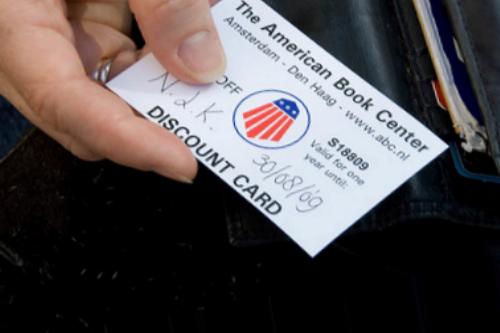 The American Book Center
Amsterdam - Den Haag - www.abc.nl
OFF
S18809
Valid for one
year until:
N.d.K.
30/08/09
DISCOUNT CARD